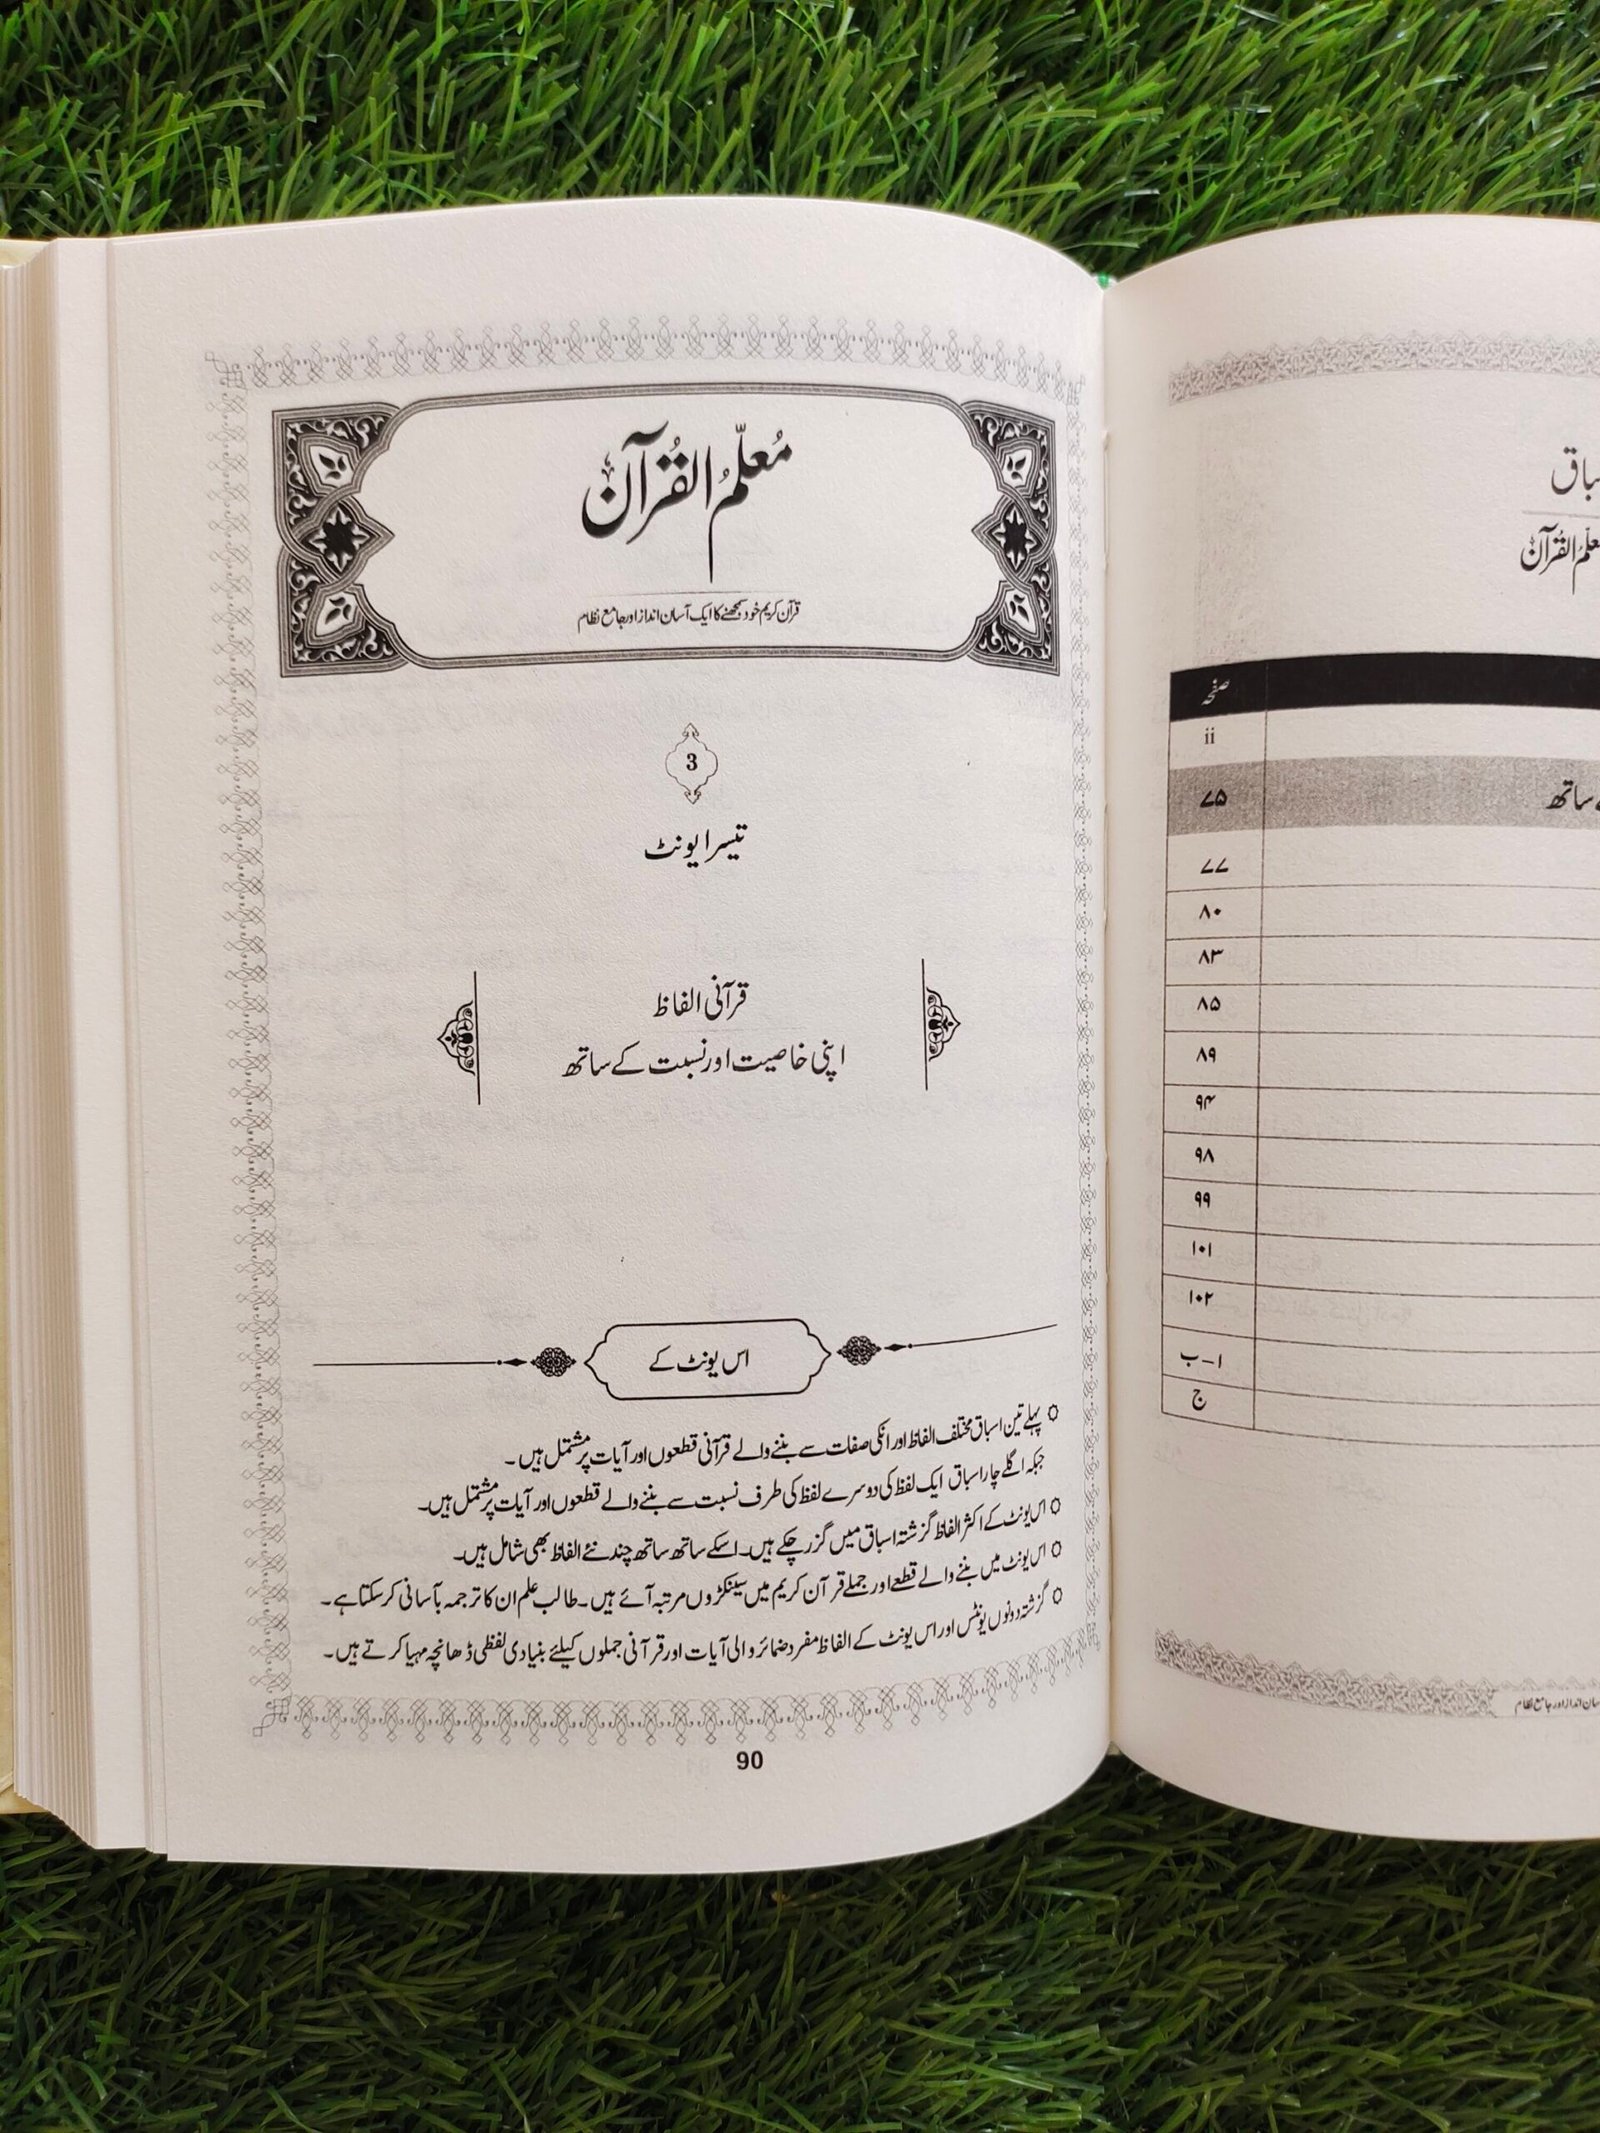 مُعلّمُ القُرآن
قرآن کریم خود سمجھنے کا ایک آسان انداز اور جامع نظام
3
تیسرا یونٹ
قرآنی الفاظ
اپنی خاصیت اور نسبت کے ساتھ
اس یونٹ کے
پہلے تین اسباق مختلف الفاظ اور انکی صفات سے بننے والے قرآنی قطعوں اور آیات پر مشتمل ہیں۔
جبکہ اگلے چار اسباق ایک لفظ کی دوسرے لفظ کی طرف نسبت سے بننے والے قطعوں اور آیات پر مشتمل ہیں۔
اس یونٹ کے اکثر الفاظ گزشتہ اسباق میں گزر چکے ہیں۔ اسکے ساتھ ساتھ چند نئے الفاظ بھی شامل ہیں۔
اس یونٹ میں بننے والے قطعے اور جملے قرآن کریم میں سینکڑوں مرتبہ آئے ہیں۔ طالب علم ان کا ترجمہ بآسانی کر سکتا ہے۔
گزشتہ دونوں یونٹس اور اس یونٹ کے الفاظ مفرد ضمائر والی آیات اور قرآنی جملوں کیلئے بنیادی لفظی ڈھانچہ مہیا کرتے ہیں۔
90
القُرآن
صفحہ
ii
ساتھ ۷۵
۷۷
۸۰
۸۳
۸۵
۸۹
۹۴
۹۸
۹۹
۱۰۱
۱۰۲
ا-ب
ج
انداز اور جامع نظام